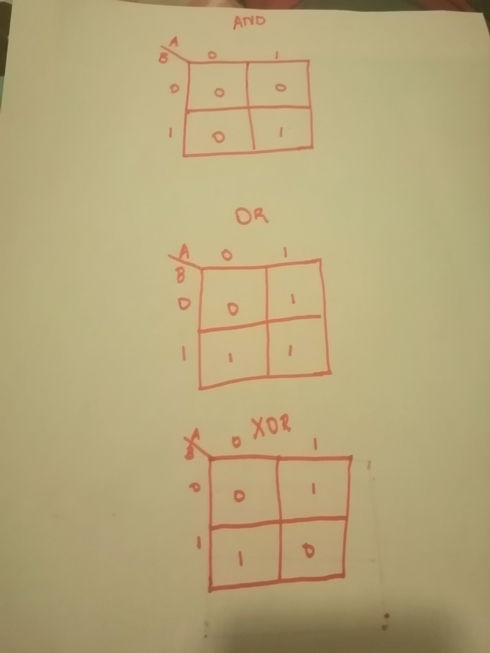 AND
A
B 0 1
0 0 0
1 0 1
OR
A 0 1
B
0 0 1
1 1 1
XOR
A 0 1
B
0 0 1
1 1 0